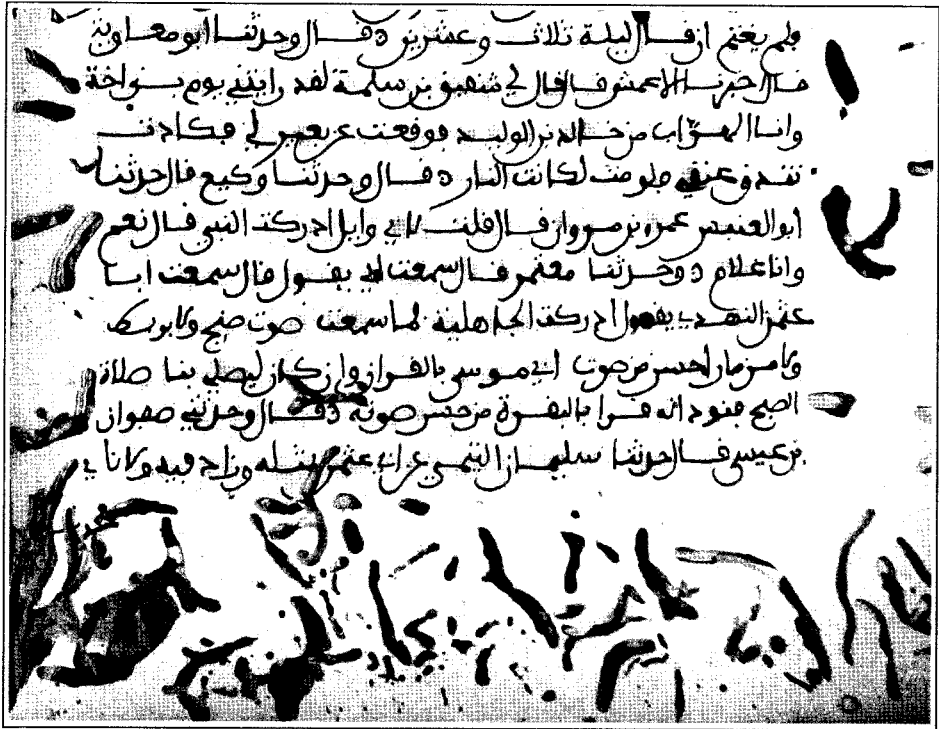 ولم يغتم ان قال ليلة ثلاث وعشرين ه قال وحدثنا ابو معاوية
قال اخبرنا الاعمش قال قال لي شقيق بن سلمة لقد رايتني يوم بزاخة
وانا الهرّاب من خالد بن الوليد فوقعت عن بعير لي فكادت
تندق عنقي فلو مت لكانت النار ه قال وحدثنا وكيع قال حدثنا
ابو العنبس عمرو بن مروان قال قلت لابي وايل ادركت النبي قال نعم
وانا غلام ه وحدثنا معتمر قال سمعت ابي يقول قال سمعت ابا
عثمن النهدي يقول ادركت الجاهلية فما سمعت صوت صنج ولا بربط
ولا مزمار احسن من صوت ابي موسى بالقران وان كان ليصلي بنا صلاة
الصبح فنود انه قرا بالبقرة من حسن صوته ه قال وحدثني صفوان
بن عيسى قال حدثنا سليمان التيمي عن ابي عثمن مثله وزاد فيه ولا ناي